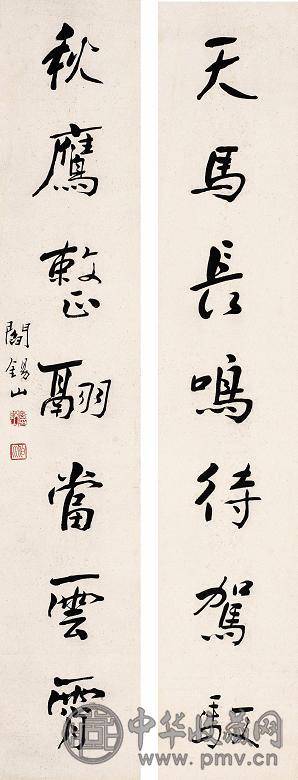 天馬長鳴待駕馭
秋鷹整翮當雲霄
閻錫山
中华收藏网
www.pmv.cn